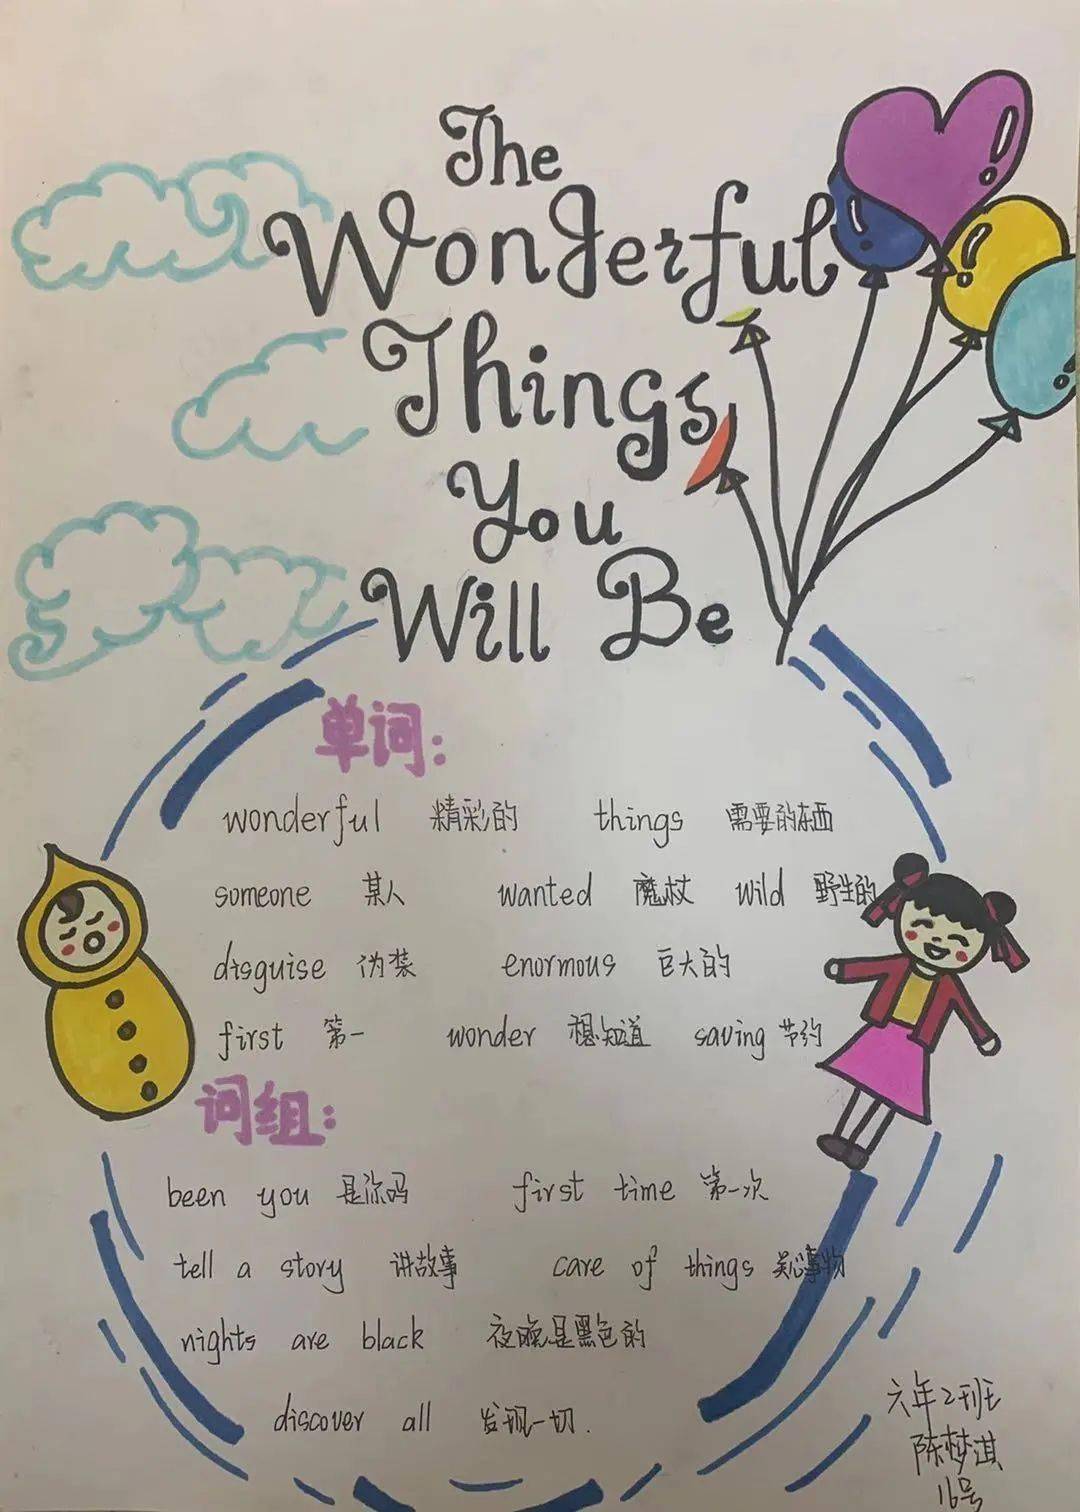 The
Wonderful
Things
You
Will Be
单词:
wonderful 精彩的 things 需要的东西
someone 某人 wanted 魔杖 wild 野生的
disguise 伪装 enormous 巨大的
first 第一 wonder 想知道 saving 节约
词组:
been you 是你吗 first time 第一次
tell a story 讲故事 care of things 关心事物
nights are black 夜晚是黑色的
discover all 发现一切.
六年2班
陈梦淇
16号